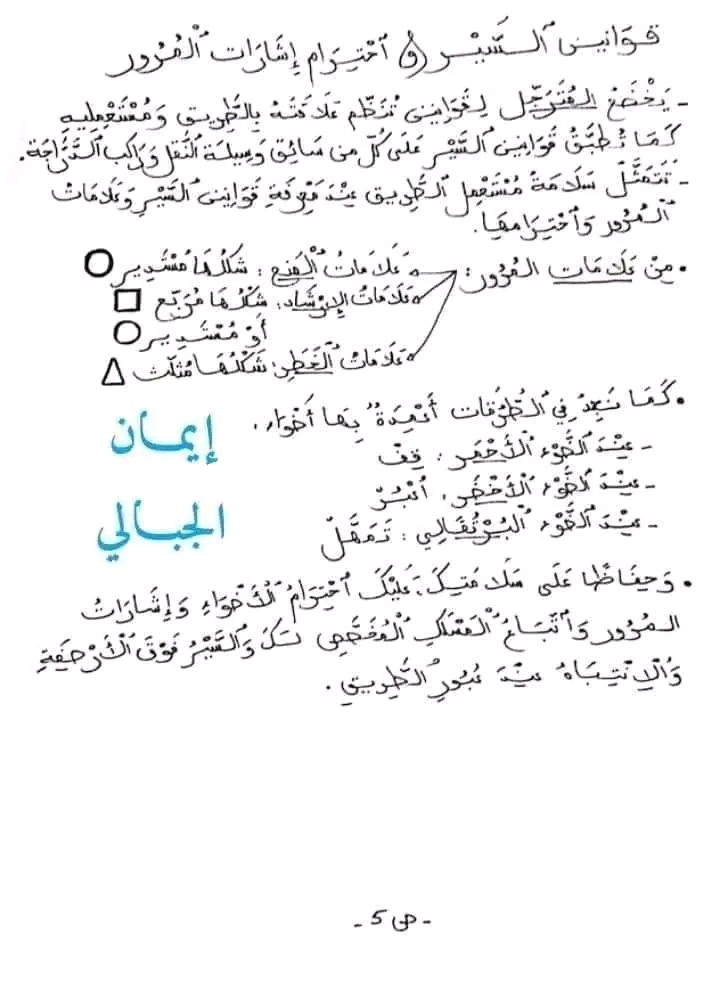 قَوَانِينُ السَّيْرِ وَ اِحْتِرَامِ إِشَارَاتِ الْمُرُورِ
- يَخْضَعُ الْمُتَرَجِّلُ لِقَوَانِينَ تُنَظِّمُ عَلَاقَتَهُ بِالطَّرِيقِ وَمُسْتَعْمِلِيهِ
كَمَا تُطَبَّقُ قَوَانِينُ السَّيْرِ عَلَى كُلِّ مِنْ سَائِقِ وَسِيلَةِ النَّقْلِ وَرَاكِبِ الدَّرَّاجَةِ.
- تَتَمَثَّلُ سَلَامَةُ مُسْتَعْمِلِ الطَّرِيقِ عِنْدَ مَعْرِفَةِ قَوَانِينِ السَّيْرِ وَعَلَامَاتِ
الْمُرُورِ وَاحْتِرَامِهَا.
• مِنْ عَلَامَاتِ الْمُرُورِ: عَلَامَاتُ الْمَنْعِ: شَكْلُهَا مُسْتَدِير
عَلَامَاتُ الْإِرْشَادِ: شَكْلُهَا مُرَبَّع
أَوْ مُسْتَدِير
عَلَامَاتُ الْخَطَرِ: شَكْلُهَا مُثَلَّث
• كَمَا نَجِدُ فِي الطُّرُقَاتِ أَعْمِدَةً بِهَا أَضْوَاء.
- عِنْدَ الضَّوْءِ الْأَحْمَرِ: قِفْ
- عِنْدَ الضَّوْءِ الْأَخْضَرِ: اُعْبُرْ
- عِنْدَ الضَّوْءِ الْبُرْتُقَالِي: تَمَهَّلْ
إيمان
الجبالي
• وَحِفَاظًا عَلَى سَلَامَتِكَ، عَلَيْكَ اِحْتِرَامُ الْأَضْوَاءِ وَإِشَارَاتِ
الْمُرُورِ وَاتِّبَاعُ الْمَسْلَكِ الْمُخَصَّصِ لَكَ وَالسَّيْرُ فَوْقَ الْأَرْصِفَةِ
وَالْاِنْتِبَاهُ عِنْدَ عُبُورِ الطَّرِيقِ.
- ص 5 -